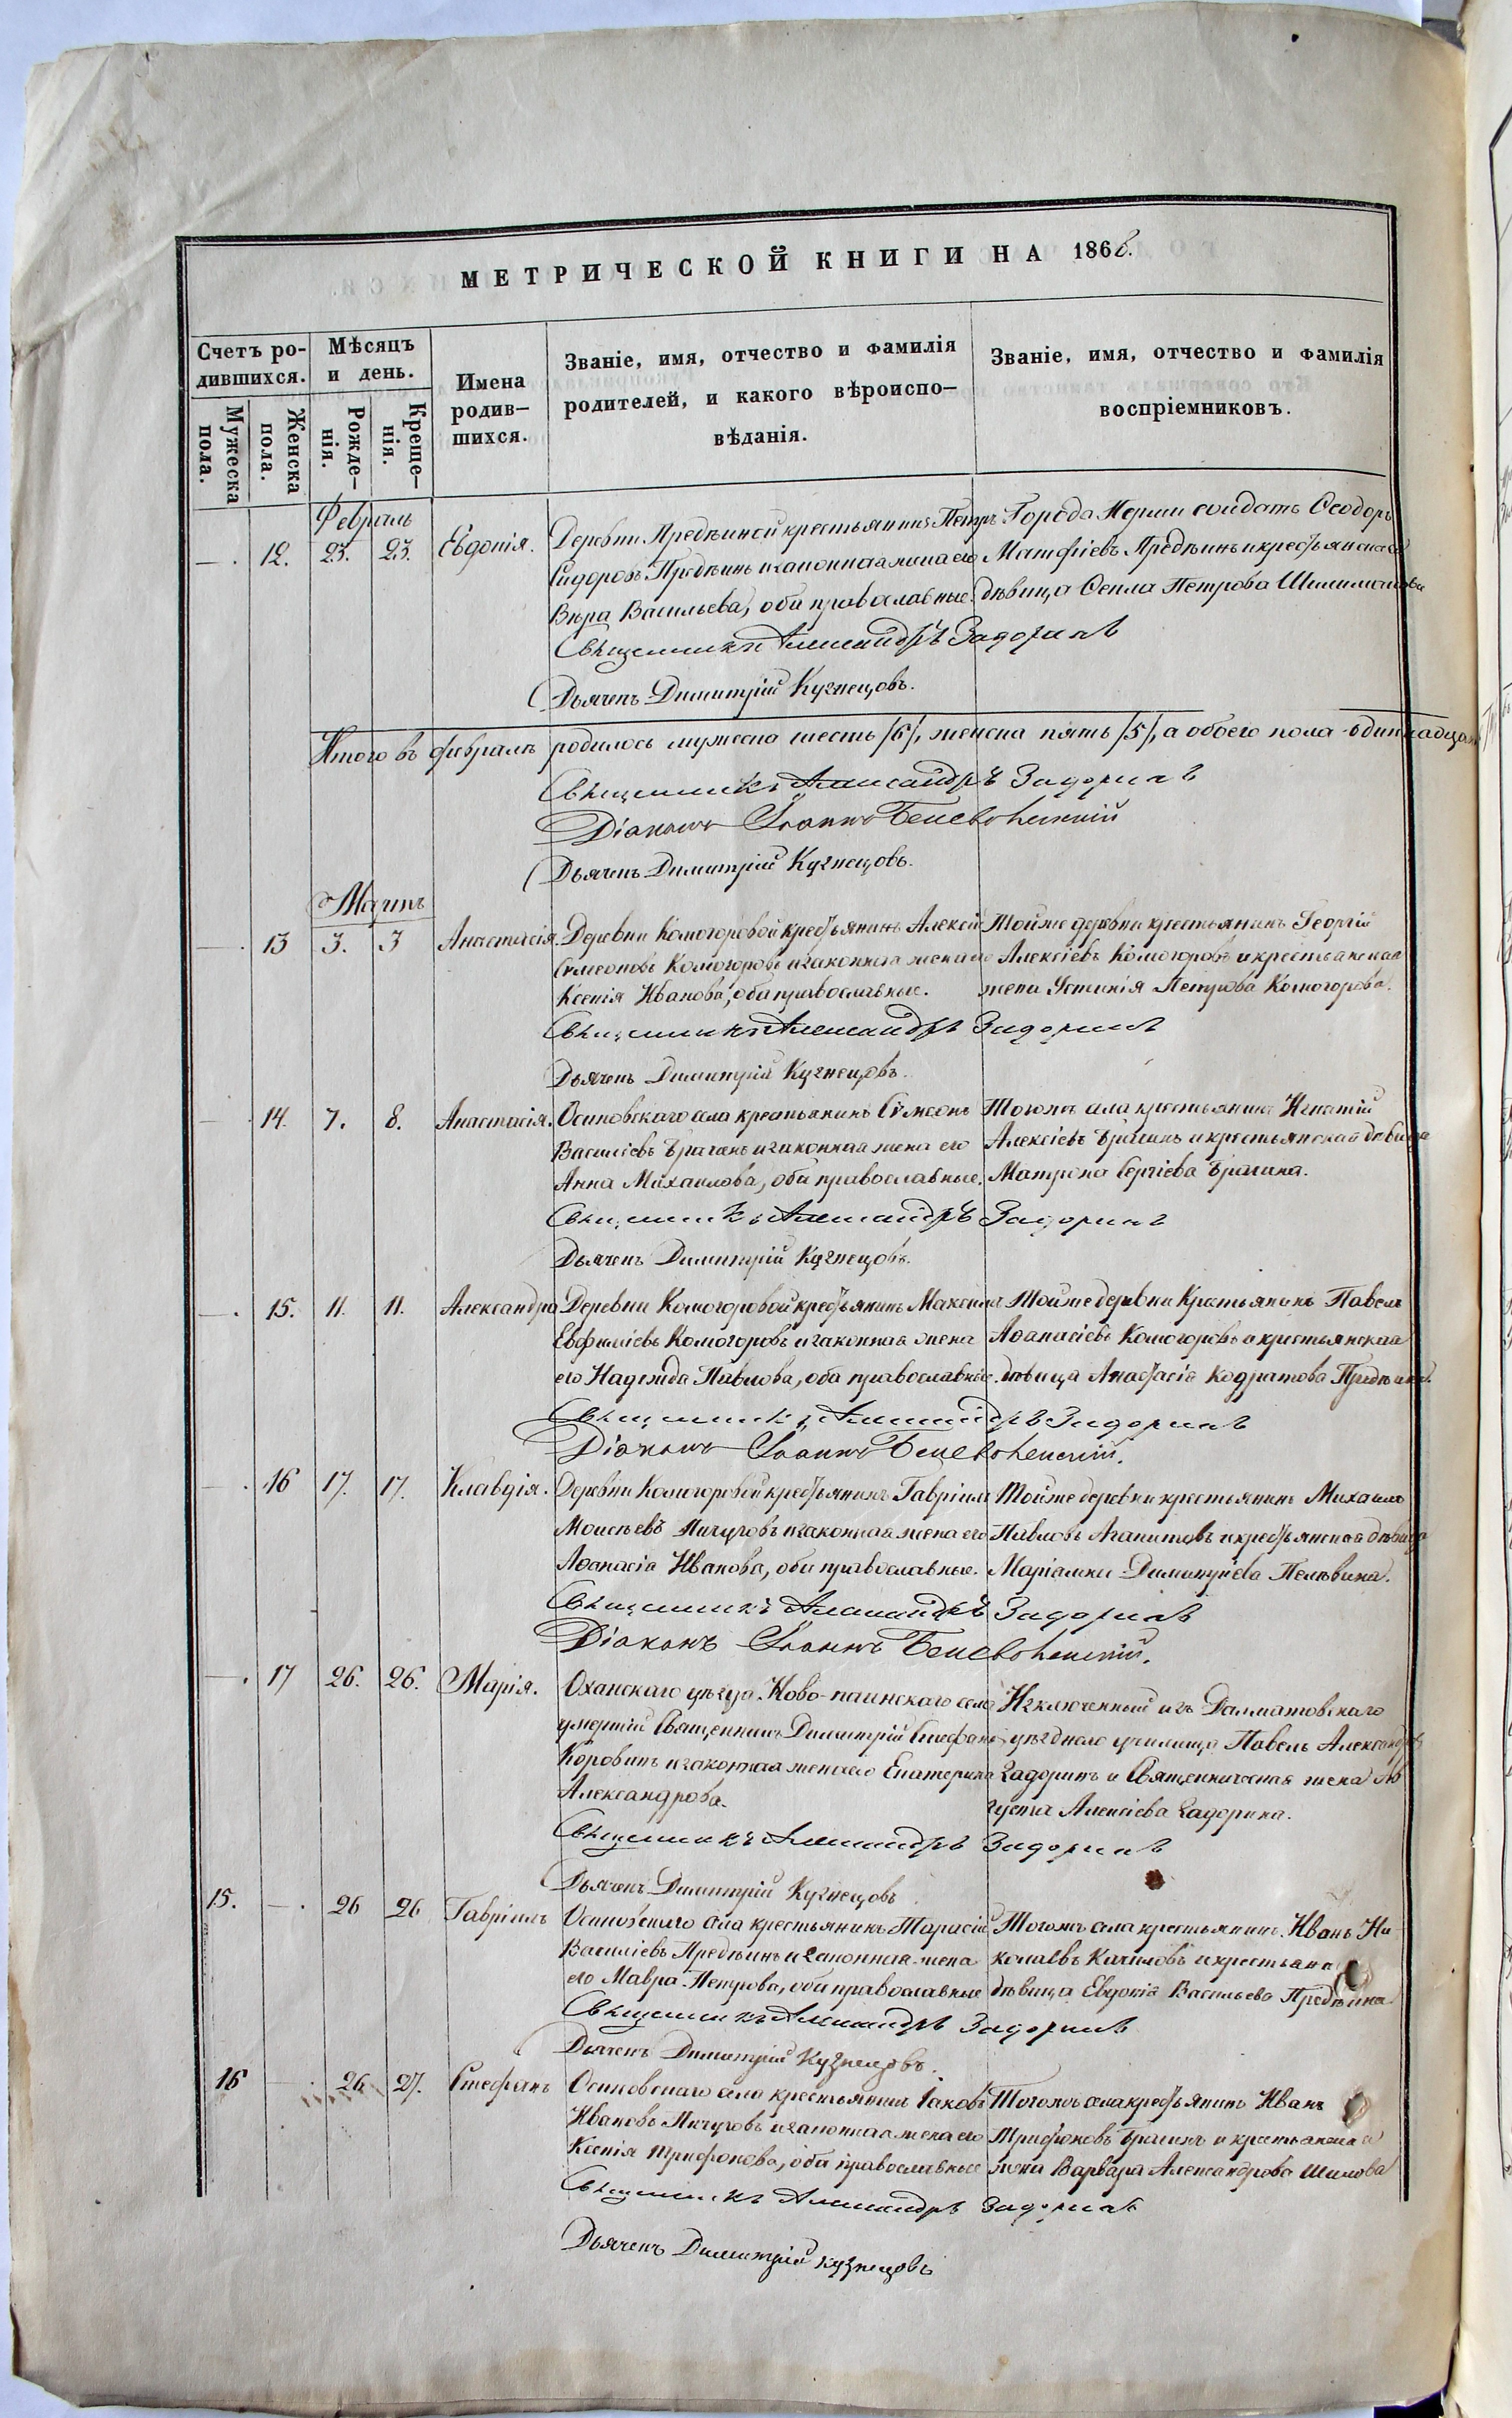 МЕТРИЧЕСКОЙ КНИГИ НА 1866.
Счетъ ро-
дившихся.
Мѣсяцъ
и день.
Имена
родив-
шихся.
Званіе, имя, отчество и фамилія
родителей, и какого вѣроиспо-
вѣданія.
Званіе, имя, отчество и фамилія
воспріемниковъ.
Мужеска
пола.
Женска
пола.
Рожде-
нія.
Креще-
нія.
Февраль
— . 12. 23. 23. Евдокія. Деревни Предѣиной крестьянинъ Петръ Города Перми солдатъ Ѳеодоръ
Сидоровъ Предѣинъ и законная жена его Матфіевъ Предѣинъ и крестьянская
Вѣра Васильева, оба православные. дѣвица Ѳекла Петрова
Священникъ Александръ Задоринъ
Дьячекъ Димитрій Кузнецовъ.
Итого въ февралѣ родилось мужеска шесть /6/, женска пять /5/, а обоего пола одиннадцать
Священникъ Александръ Задоринъ
Діаконъ Іоаннъ Беневоленскій
Дьячекъ Димитрій Кузнецовъ.
Мартъ
— . 13 3. 3 Анастасія. Деревни Комогоровой крестьянинъ Алексій Тойже деревни крестьянинъ Георгій
Симеоновъ Комогоровъ и законная жена его Алексіевъ Комогоровъ и крестьянская
Ксенія Иванова, оба православные. жена Устинія Петрова Комогорова.
Священникъ Александръ Задоринъ
Дьячекъ Димитрій Кузнецовъ.
— 14. 7. 8. Анастасія. Осиновскаго села крестьянинъ Сѵмеонъ Тогожъ села крестьянинъ Игнатій
Василіевъ Брагинъ и законная жена его Алексіевъ Брагинъ и крестьянская дѣвица
Анна Михаилова, оба православные. Матрона Сергіева Брагина.
Священникъ Александръ Задоринъ
Дьячекъ Димитрій Кузнецовъ.
— . 15. 11. 11. Александра Деревни Комогоровой крестьянинъ Максимъ Тойже деревни Крестьянинъ Павелъ
Евфиміевъ Комогоровъ и законная жена Аѳанасіевъ Комогоровъ и крестьянская
его Надежда Павлова, оба православные. дѣвица Анастасія Кодратова Предѣина.
Священникъ Александръ Задоринъ
Діаконъ Іоаннъ Беневоленскій.
— . 16 17. 17. Клавдія. Деревни Комогоровой крестьянинъ Гавріилъ Тойже деревни крестьянинъ Михаилъ
Моисѣевъ Пичуговъ и законная жена его Павловъ Агапитовъ и крестьянская дѣвица
Аѳанасіа Иванова, оба православные. Маріамна Димитріева Пелевина.
Священникъ Александръ Задоринъ
Діаконъ Іоаннъ Беневоленскій.
— . 17 26. 26. Марія. Оханскаго уѣзда Ново-паинскаго села Изключенный изъ Далматовскаго
умершій Священникъ Димитрій Стефановъ уѣзднаго училища Павелъ Александровъ
Коровинъ и законная жена его Екатерина Задоринъ и Священническая жена Ав
Александрова. густа Алексіева Задорина.
Священникъ Александръ Задоринъ
Дьячекъ Димитрій Кузнецовъ
15. — . 26 26 Гавріилъ Осиновскаго села крестьянинъ Тарасій Тогожъ села крестьянинъ Иванъ Ни-
Василіевъ Предѣинъ и законная жена колаевъ и крестьянс
его Мавра Петрова, оба православные дѣвица Евдокія Васильева Предѣина
Священникъ Александръ Задоринъ
Дьячекъ Димитрій Кузнецовъ.
16 — . 26 27. Стефанъ Осиновскаго села крестьянинъ Іаковъ Тогожъ села крестьянинъ Иванъ
Ивановъ Пичуговъ и законная жена его Трифоновъ Брагинъ и крестьянская
Ксенія Трифонова, оба православные жена Варвара Александрова Шилова
Священникъ Александръ Задоринъ
Дьячекъ Димитрій Кузнецовъ